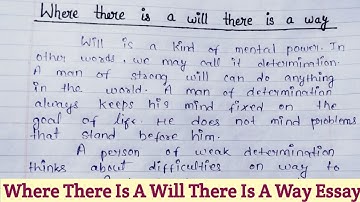 Where there is a will there is a way
Will is a kind of mental power. In
other words, we may call it determination.
A man of strong will can do anything
in the world. A man of determination
always keeps his mind fixed on the
goal of life. He does not mind problems
that stand before him.
A person of weak determination
thinks about difficulties on way to
Where There Is A Will There Is A Way Essay